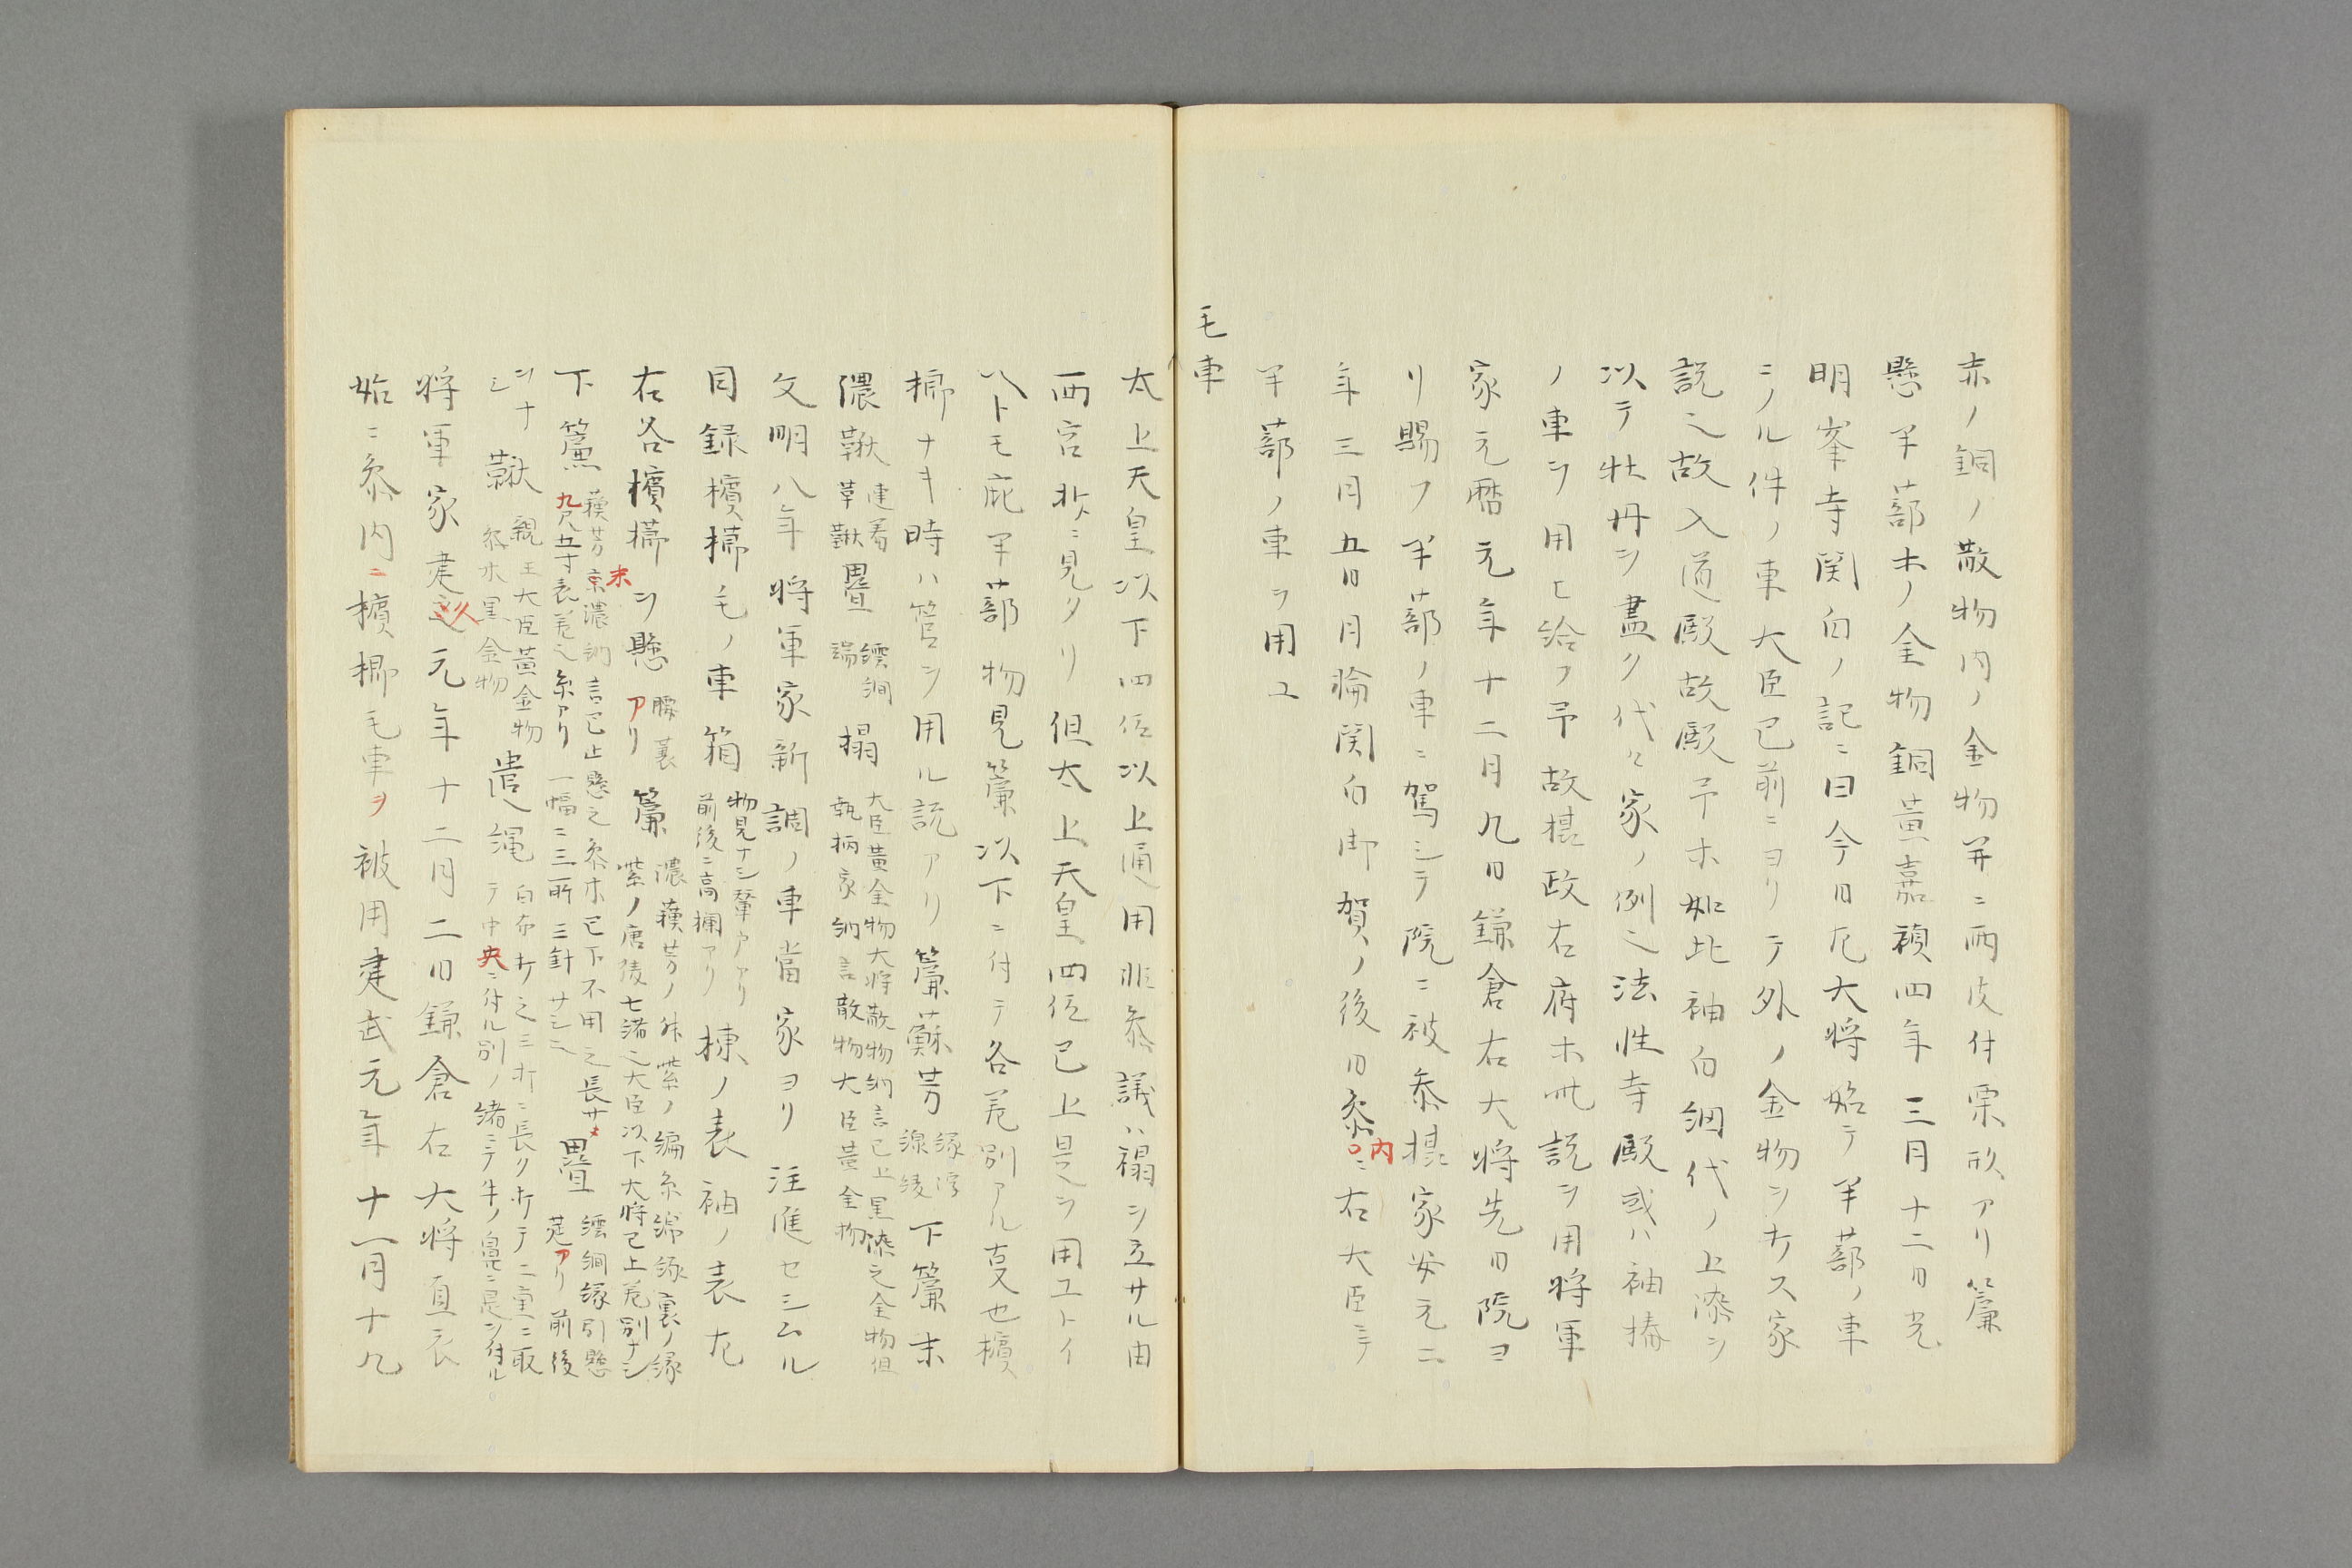 赤ノ銅ノ散物内ノ金物并ニ両皮付栗形アリ簾
懸半蔀ホノ金物銅黄嘉禎四年三月十二日光
明峯寺関白ノ記ニ曰今日左大将始テ半蔀ノ車
ニノル件ノ車大臣已前ニヨリテ外ノ金物ヲ打ス家
説之故入道殿故殿予ホ如此袖白網代ノ上漆ヲ
以テ牡丹ヲ畫ク代々家ノ例之法性寺殿或ハ袖摏
ノ車ヲ用ヒ給フ予故摂政右府ホ此説ヲ用将軍
家元暦元年十二月九日鎌倉右大将先日院ヨ
リ賜フ半蔀ノ車ニ駕シテ院ニ被参摂家安元二
年三月五日月輪関白御賀ノ後日参内ニ右大臣ニテ
半蔀ノ車ヲ用ユ
毛車
太上天皇以下四位以上通用非参議ハ榻ヲ立サル由
西宮抄ニ見タリ但太上天皇四位已上是ヲ用ユトイ
ヘトモ庇半蔀物見簾以下ニ付テ各差別アル叓也檳
榔ナキ時ハ菅ヲ用ル説アリ簾蘇芳 縁浮線綾 下簾末
濃鞦 連着革鞦 疊 繧繝端 榻 大臣黄金物大将散物納言已上黒漆之金物但
執柄家納言散物大臣黄金物
文明八年将軍家新調ノ車當家ヨリ注進セシムル
目録檳榔毛ノ車箱 物見ナシ輦戸アリ前後ニ高欄アリ 棟ノ表袖ノ表左
右各檳榔ヲ懸 腰裏アリ 簾 濃蘓芳ノ 紫ノ編糸綿縁裏ノ縁
紫ノ唐綾七緒之大臣以下大将已上差別ナシ
下簾 蘓芳末濃納言已上懸之参木已下不用之長サ
九尺五寸表差之糸アリ一幅ニ三所三針サシニ 疊 繧繝縁引懸
莚アリ前後
シナ 鞦 親王大臣黄金物
参木黒金物 遣縄 白布打之三打ニ長ク打テ二重ニ取
テ中央ニ付ル別ノ緒ニテ牛ノ鼻ニ是ヲ付ル
将軍家建久元年十二月二日鎌倉右大将直衣
始ニ参内ニ檳榔毛車ヲ被用建武元年十一月十九